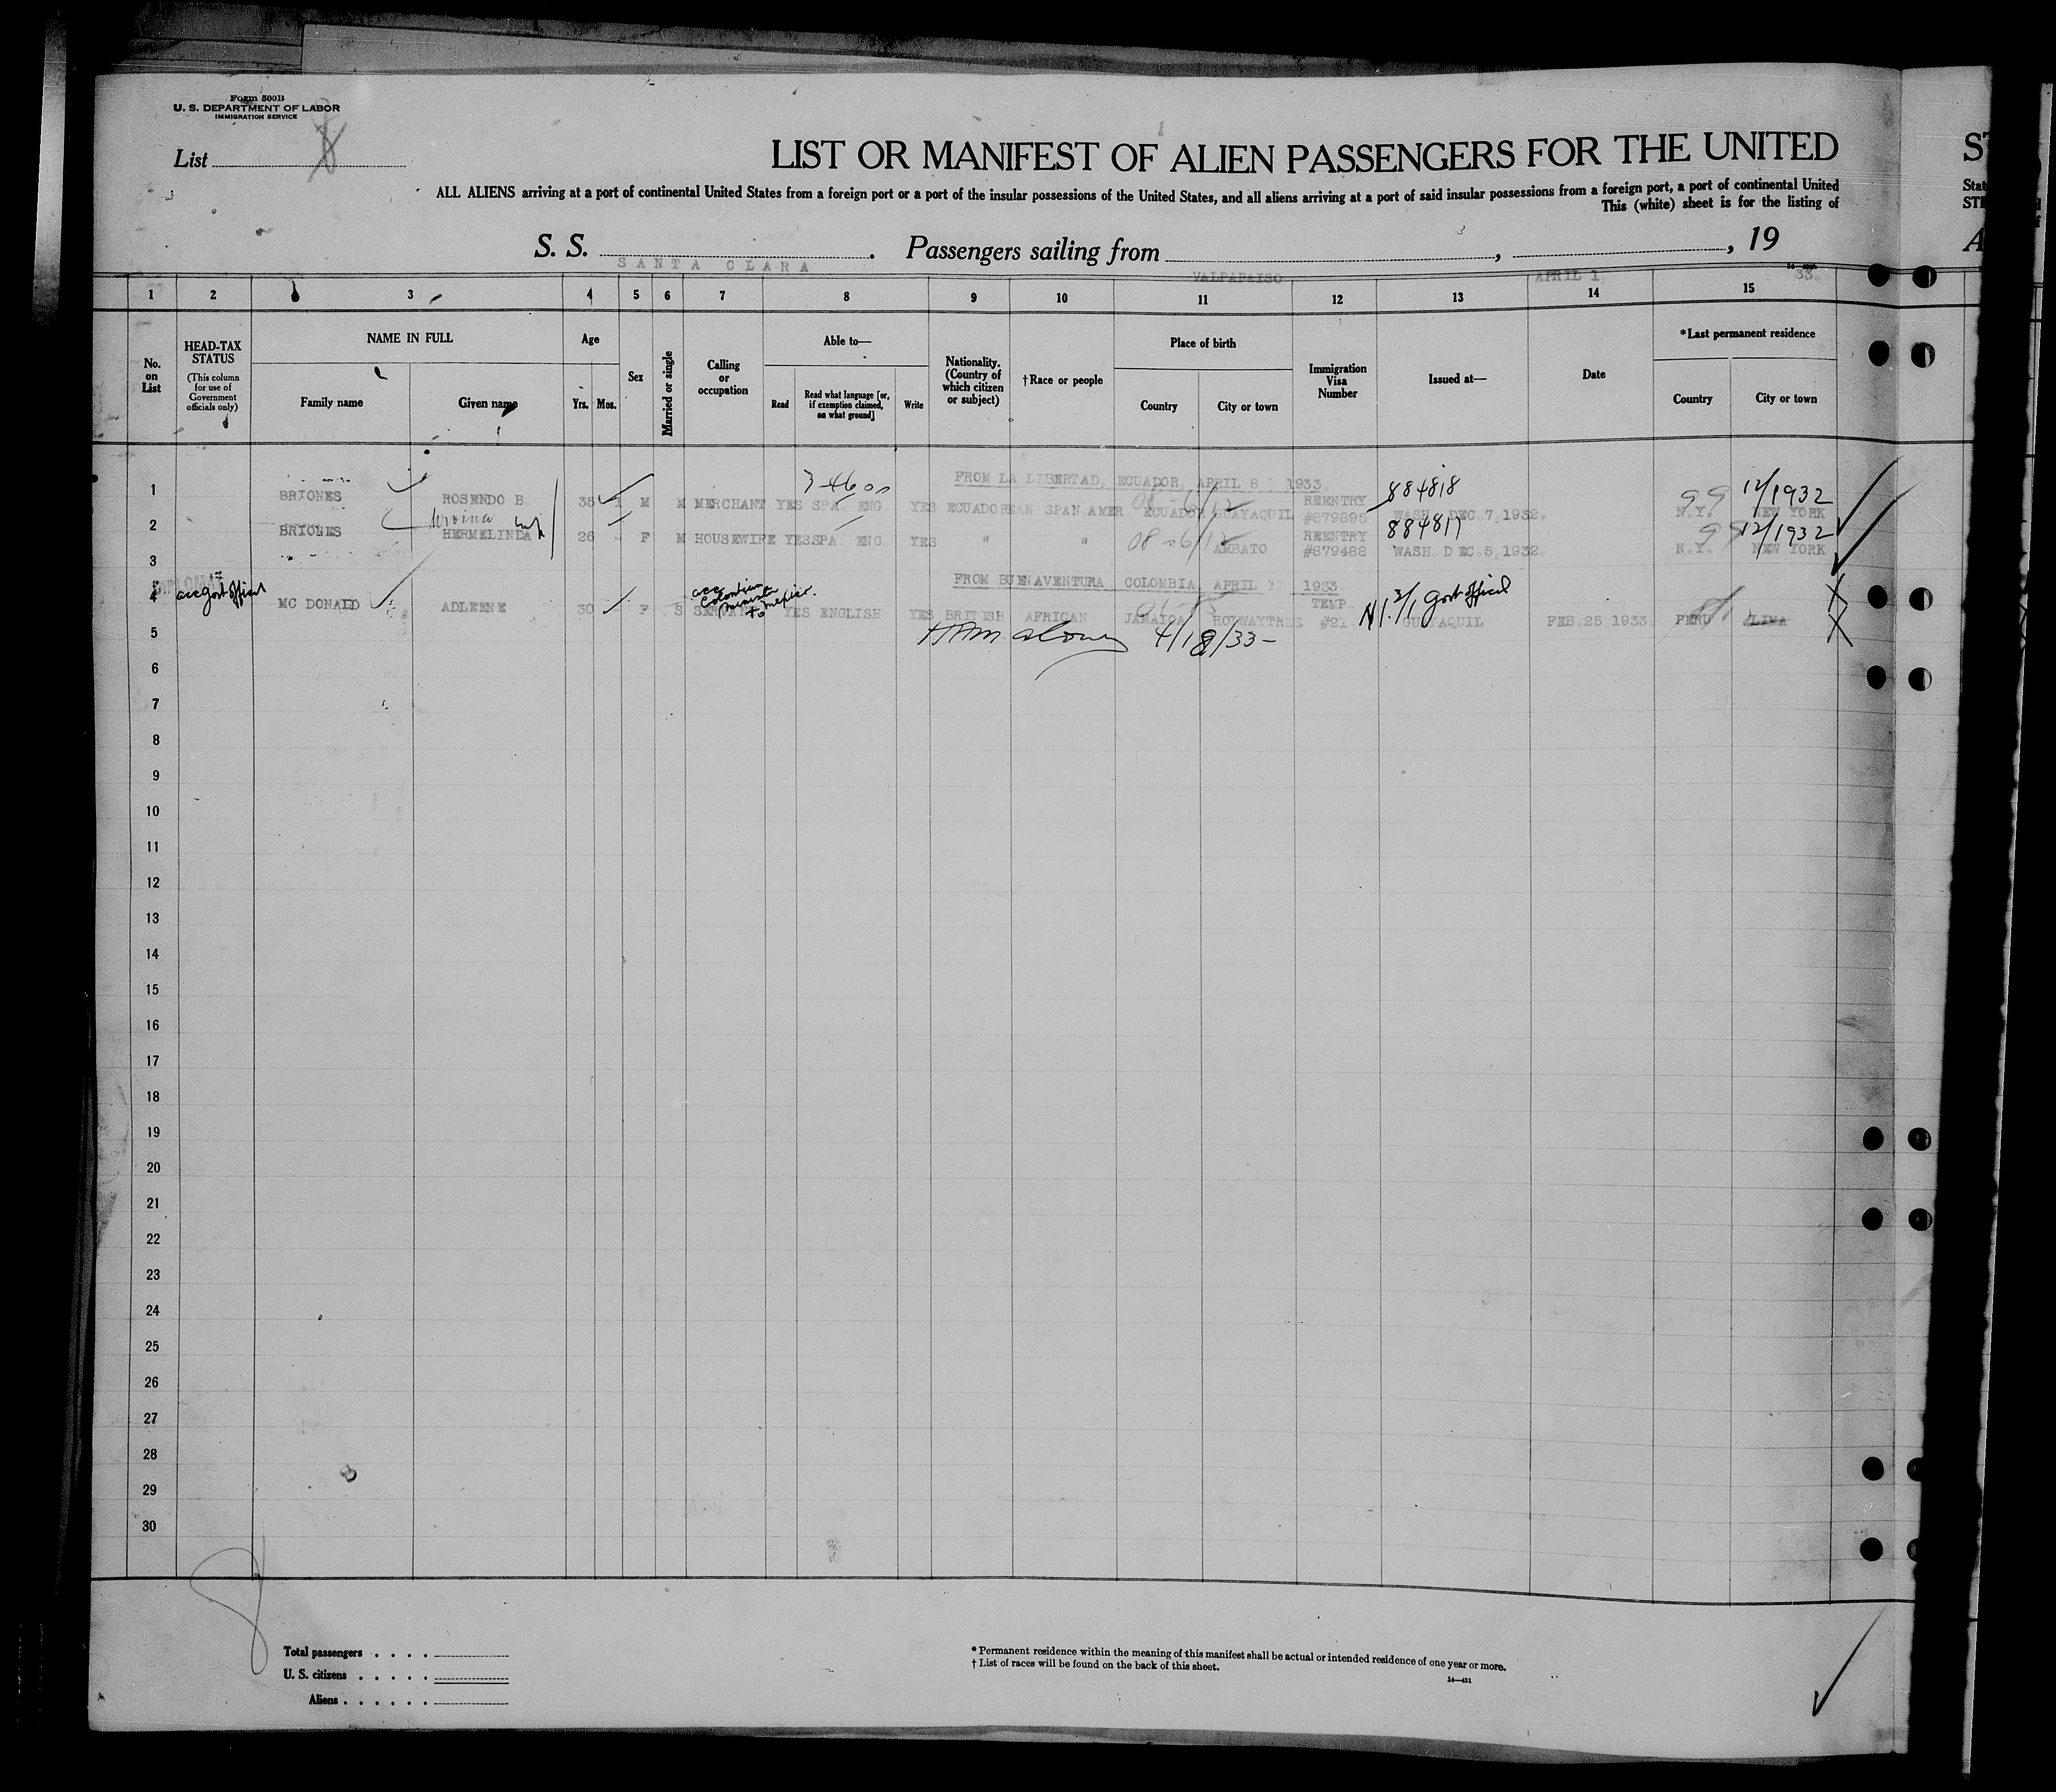 Form 500B
U. S. DEPARTMENT OF LABOR
IMMIGRATION SERVICE
List 8
LIST OR MANIFEST OF ALIEN PASSENGERS FOR THE UNITED
ST
ALL ALIENS arriving at a port of continental United States from a foreign port or a port of the insular possessions of the United States, and all aliens arriving at a port of said insular possessions from a foreign port, a port of continental United
Stat
This (white) sheet is for the listing of
STE
S. S. SANTA CLARA. Passengers sailing from VALPAPAISO, APRIL 1, 19 33.
A
1 2 3 4 5 6 7 8 9 10 11 12 13 14 15
No. on List
HEAD-TAX STATUS
(This column for use of Government officials only)
NAME IN FULL
Family name
Given name
Age
Yrs. Mos.
Sex
Married or single
Calling or occupation
Able to—
Read
Read what language [or, if exemption claimed, on what ground]
Write
Nationality. (Country of which citizen or subject)
†Race or people
Place of birth
Country
City or town
Immigration Visa Number
Issued at—
Date
*Last permanent residence
Country
City or town
FROM LA LIBERTAD, ECUADOR, APRIL 8, 1933.
884818 99 12/1932
1 BRIONES ROSENDO B. 35 M M MERCHANT YES SPA. ENG. YES ECUADOREAN SPAN.AMER ECUADOR GUAYAQUIL REENTRY #879895 WASH. DEC 7,1932. N.Y. NEW YORK
884817 99 12/1932
2 BRIONES HERMELINDA 26 F M HOUSEWIFE YES SPA. ENG. YES " " 08-6/12 AMBATO REENTRY #879488 WASH. DEC.5,1932. N.Y. NEW YORK
3
FROM BUENAVENTURA COLOMBIA, APRIL 1933
acc govt official
acc Colombian minister to Mexico.
3/1 Govt official
4 MC DONALD ADLEENE 30 F S YES ENGLISH YES BRITISH AFRICAN JAMAICA TEMP #21 GUAYAQUIL FEB.25 1933 PERU LIMA
5 4/18/33-
6
7
8
9
10
11
12
13
14
15
16
17
18
19
20
21
22
23
24
25
26
27
28
29
30
8
Total passengers . . . .
U. S. citizens . . . . .
Aliens . . . . . .
* Permanent residence within the meaning of this manifest shall be actual or intended residence of one year or more.
† List of races will be found on the back of this sheet.
14—431